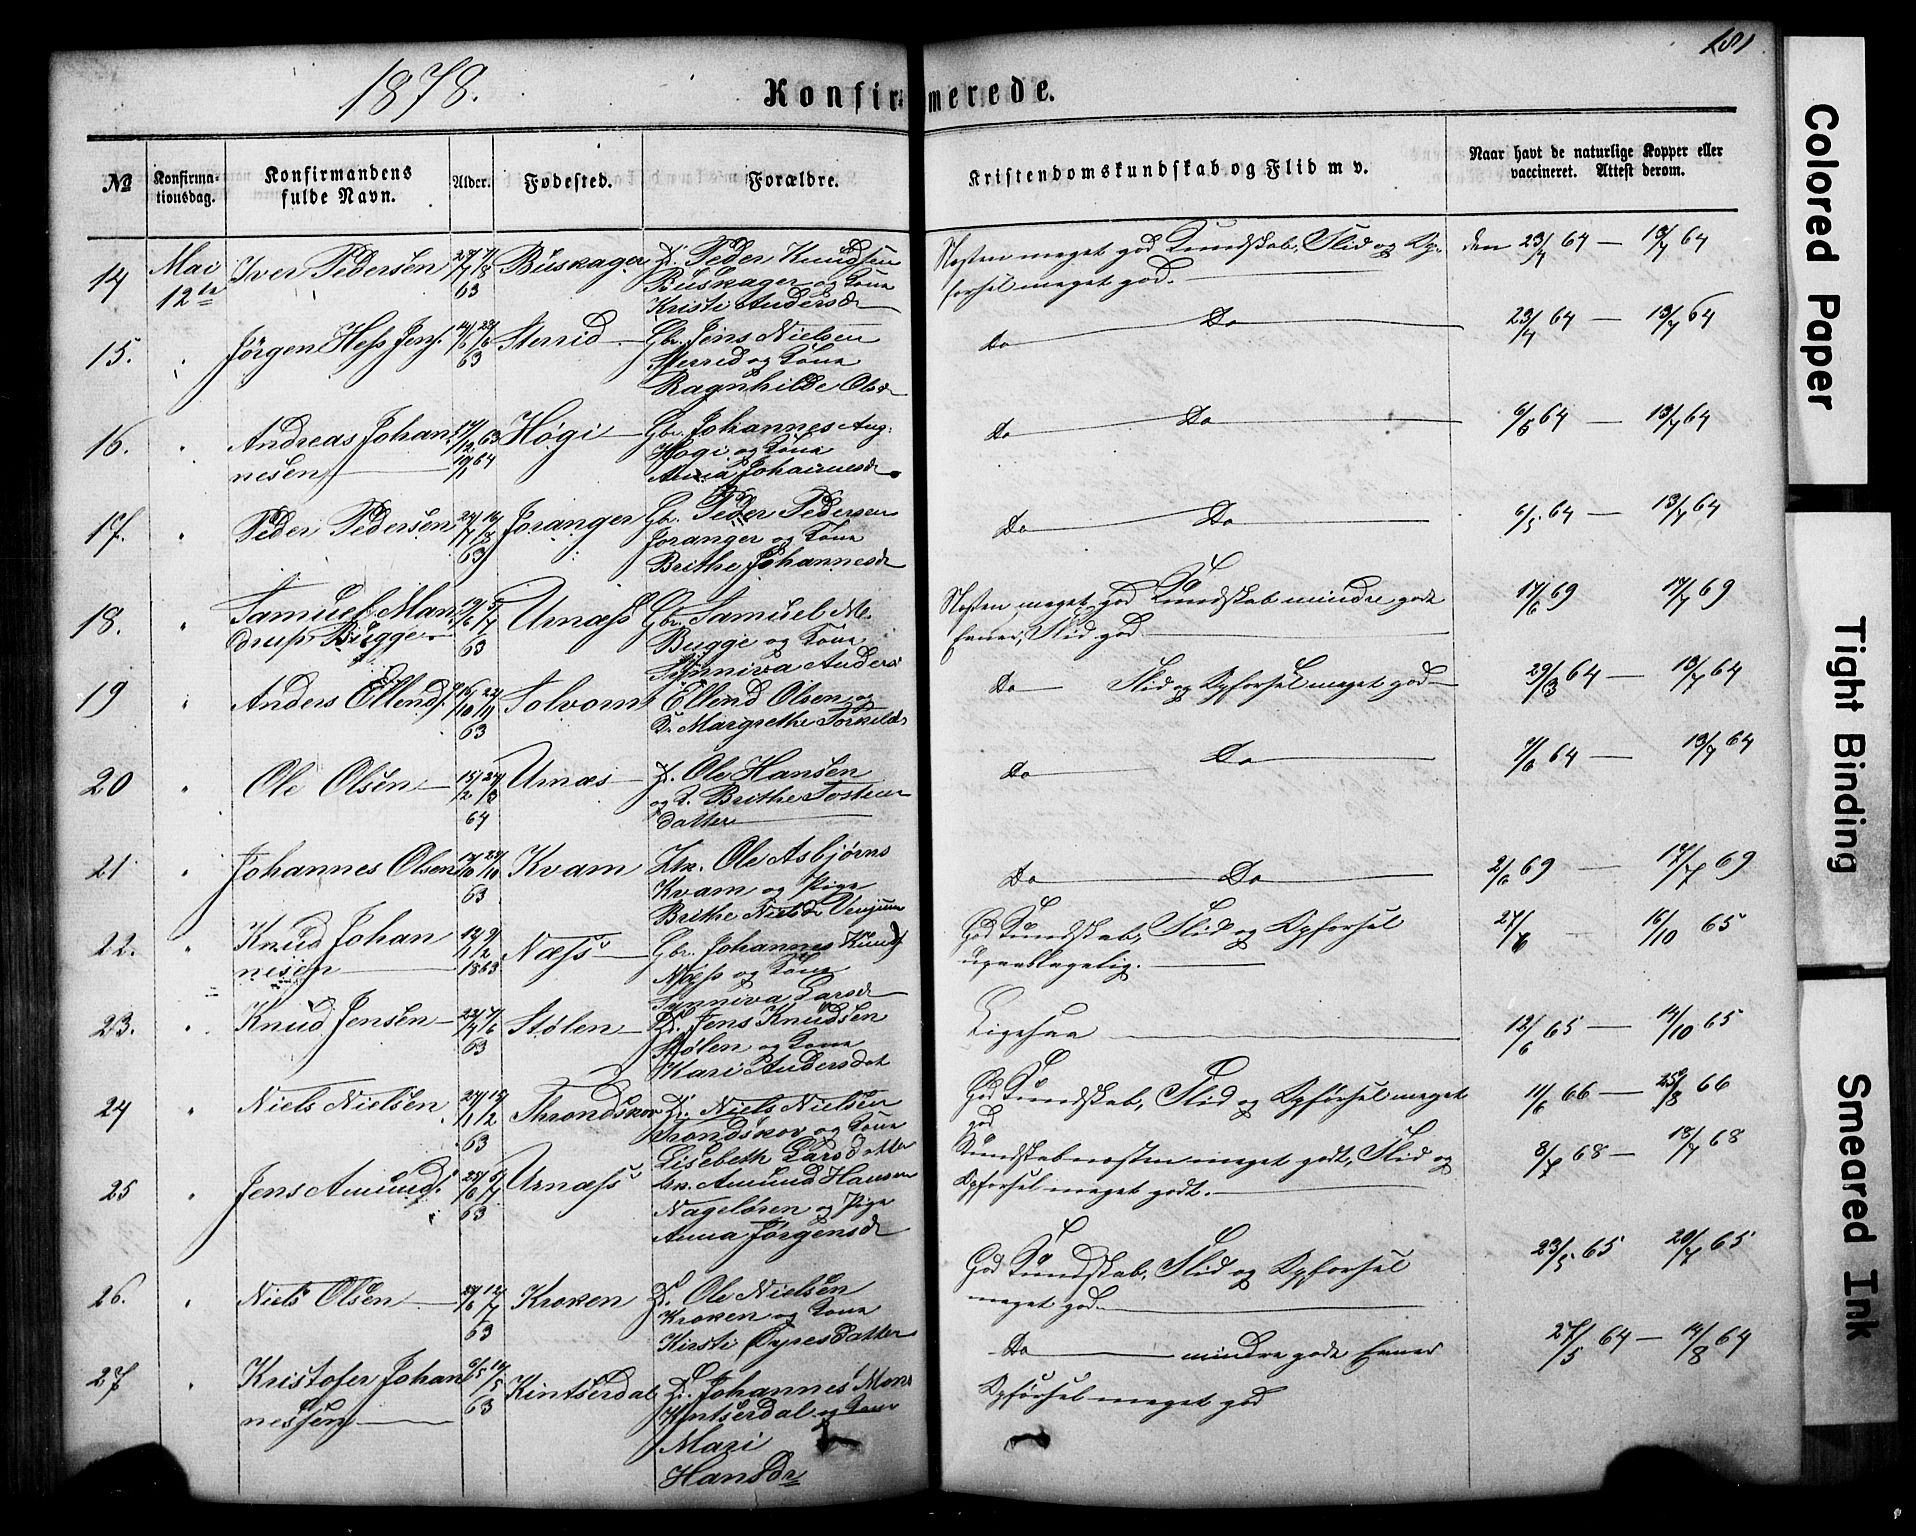 1878.
Konfirmerede.
181
№
Konfirmationsdag.
Konfirmandens fulde Navn.
Alder.
Fødested.
Forældre.
Kristendomskundskab og Flid m v.
Naar havt de naturlige Kopper eller vaccineret. Attest derom.
14 Mai 12te Iver Pedersen 63 Buskager Peder Knudsen
Buskager og Kona
Kristi Andersd
Næsten meget god Kundskab, Flid og Op-
førsel meget god. den 23/4 64 — 13/7 64
15. " Jørgen Hess Jens. 63 Gbr. Jens Nielsen
og Kona
Ragnhilde Olsd
Do Do 23/4 64 — 13/7 64
16. " Andreas Johan 17/12 63 Høgi Gbr. Johannes
nesen 19/1 64 Høgi og Kona
Anna Johannesd
Do Do 6/5 64 — 13/7 64
17. " Peder Pedersen 63 Joranger Gbr. Peder Pedersen
Joranger og Kona
Brithe Johannesd
Do Do 6/5 64 — 13/7 64
18. " Samuel Man 63 Urnæss Gbr. Samuel M.
drup Bugge Bugge og Kona
Synniva Anders
Næsten meget god Kundskab mindre gode
Evner, Flid god 17/6 69 17/7 69
19 " Anders Ellends 63 Solvorn Ellend Olsen og
K. Margrethe Torkilds
Do Flid og Opførsel meget god 29/3 64 — 13/7 64
20 " Ole Olsen 64 Urnæs Ole Hansen
og K. Brithe Tosten
datter
Do Do 64 — 13/7 64
21 " Johannes Olsen 63 Kvam Ole Asbjørns
Kvam og Pige
Brithe Nielsd Venjum
Do Do 2/6 69 — 17/7 69
22. " Knud Johan 1863 Næss Gbr. Johannes Knuds
nesen Næss og Kona
Synniva Larsd
God Kundskab, Flid og Opførsel
upaaklagelig. 27/6 — 16/10 65
23. " Knud Jensen 63 Stølen Jens Knudsen
Stølen og Kona
Kari Andersdat
Ligesaa 12/6 65 — 14/10 65
24 " Niels Nielsen 63 Throndskov Niels Nielsen
Trondskov og Kona
Lisebeth Larsdatter
God Kundskab, Flid og Opførsel meget
god 11/6 66 — 25/8 66
25 " Jens Amunds. 63 Urnæss Amund Hansen
Nageløren og Pige
Anna Jørgensd
Kundskab næsten meget godt, Flid og
Opførsel meget godt. 8/7 68 — 18/7 68
26. " Niels Olsen 63 Kroken Ole Nielsen
Kroken og Kona
Kirsti datter
God Kundskab, Flid og Opførsel
meget god 23/5 65 20/7 65
27 " Kristofer Johan 63 Kintserdal Johannes Mons
nessen Kintserdal og Kona
Mari
Hansdr
Do mindre gode Evner
Opførsel meget god 27/5 64 — 14/8 64
Colored Paper
Tight Binding
Smeared Ink